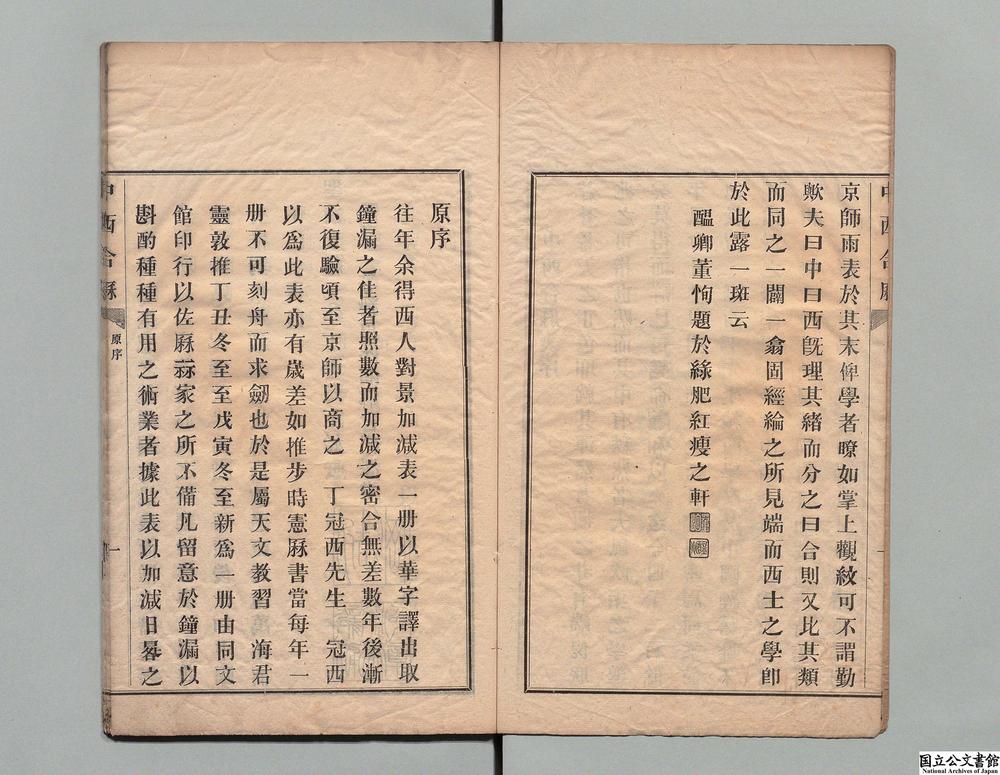 京師雨表於其末俾學者瞭如掌上觀紋可不謂勤
歟夫曰中曰西旣理其緒而分之曰合則又比其類
而同之一闢一翕固經綸之所見端而西士之學卽
於此露一斑云
醞卿董恂題於綠肥紅瘦之軒
原序
往年余得西人對景加減表一册以華字譯出取
鐘漏之佳者照數而加減之密合無差數年後漸
不復驗頃至京師以商之 丁冠西先生 冠西
以爲此表亦有歲差如推步時憲厤書當每年一
册不可刻舟而求劒也於是屬天文教習 海君
靈敦推丁丑冬至至戊寅冬至新爲一册由同文
館印行以佐厤家之所不備凡留意於鐘漏以
斟酌種種有用之術業者據此表以加減日晷之
中西合厤
原序
一
国立公文書館
National Archives of Japan